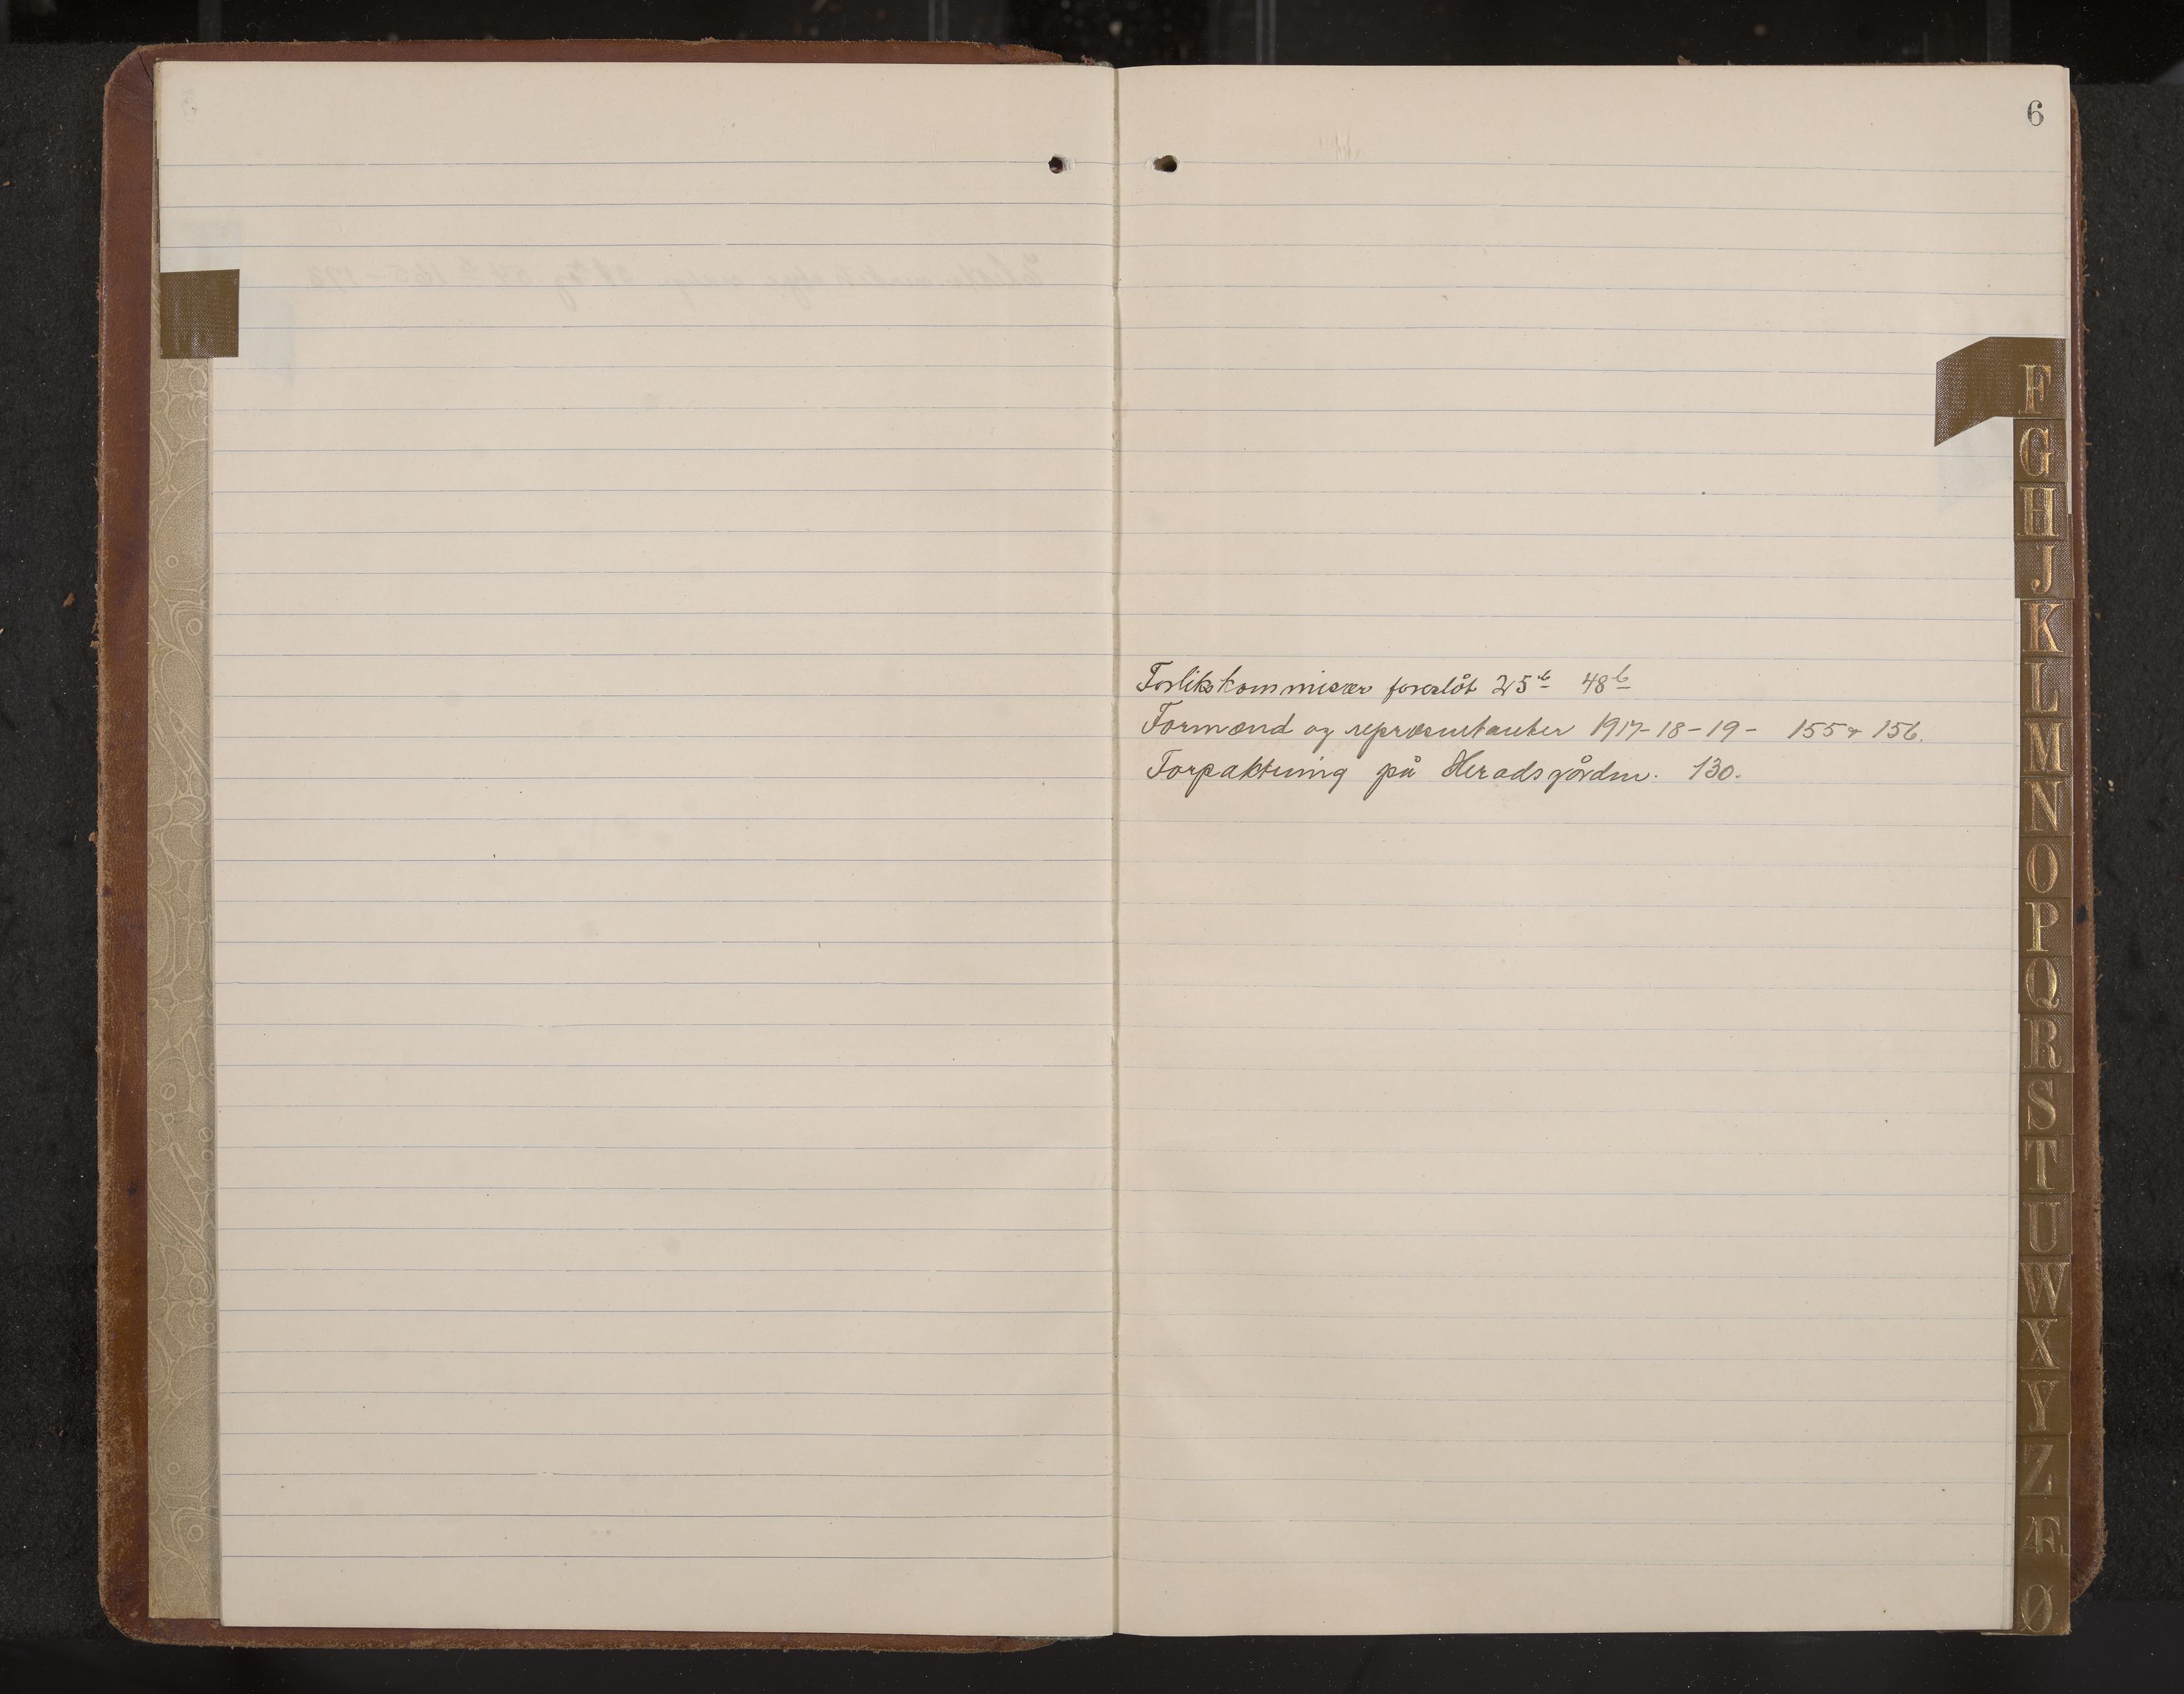 6
Forlikskommisær foreslåt 25b 48b
Formænd og repræsentanter 1917-18-19- 155 & 156.
Forpaktning på Heradsgården. 130.
F
G
H
J
K
L
M
N
O
P
Q
R
S
T
U
W
X
Y
Z
Æ
Ø